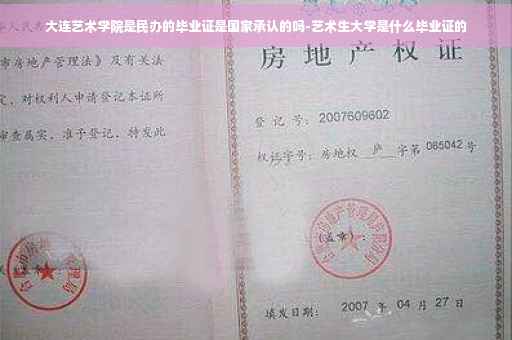 大连艺术学院是民办的毕业证是国家承认的吗-艺术生大学是什么毕业证的
市房地产管理法》及有关法
定，对权利人申请登记本证所
审查属实，准予登记，特发此
房地产权
登记号：2007609602
权证字号：房地权 庐 字第 085042 号
(盖章)：
填发日期：2007 年 04 月 27 日